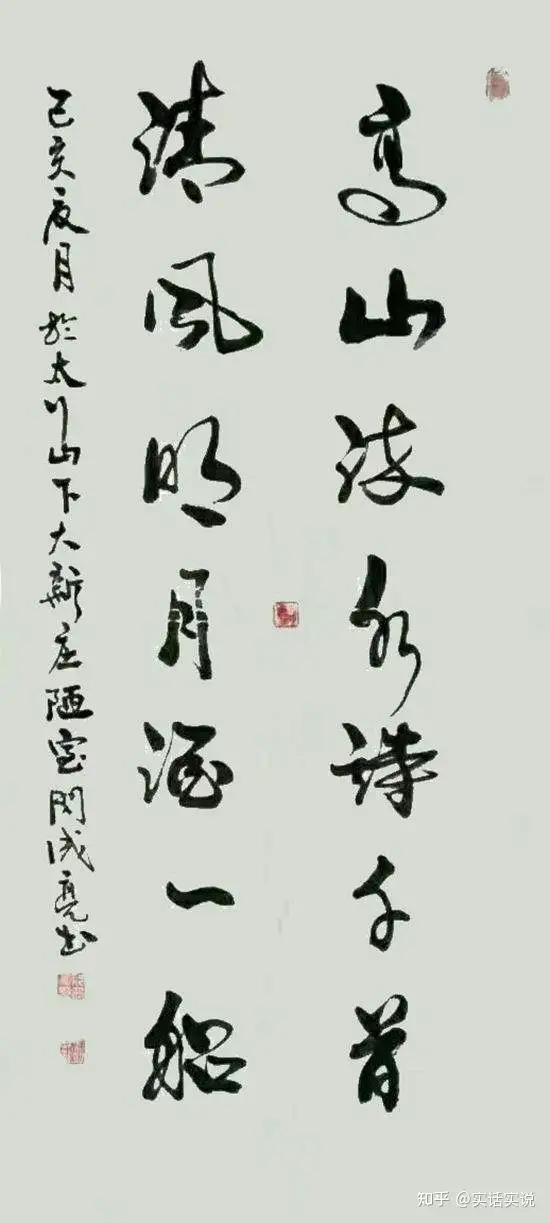 高山流水詩千首
清風明月酒一船
己亥夏月於太行山下大新庄陋室成亮书
知乎 @实话实说